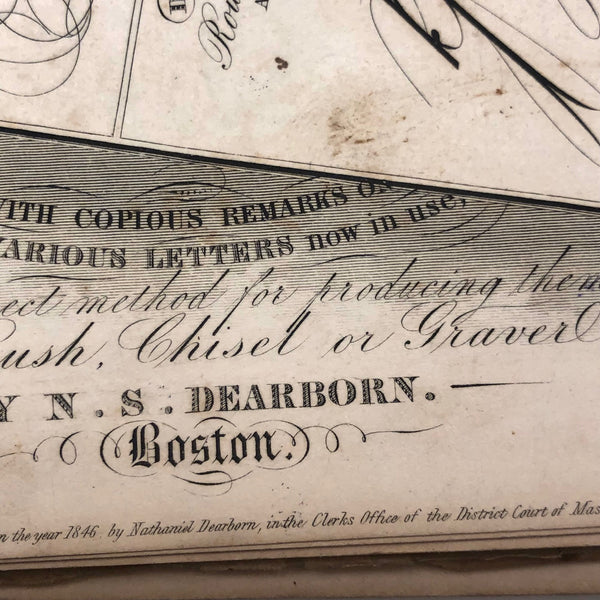 Rou
WITH COPIOUS REMARKS ON
VARIOUS LETTERS now in use,
ect method for producing them
ush, Chisel or Graver
Y N. S. DEARBORN.
Boston.
n the year 1846, by Nathaniel Dearborn, in the Clerks Office of the District Court of Mas